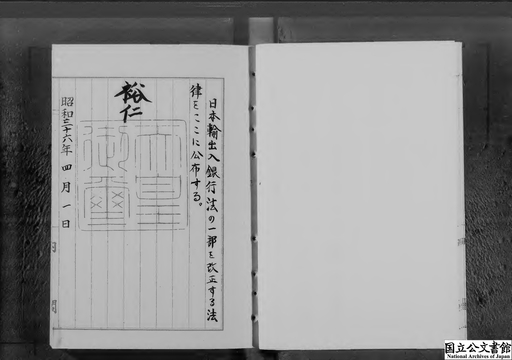 日本輸出入銀行法の一部を改正する法
律をここに公布する。
裕仁
天皇
御璽
昭和二十六年四月一日
国立公文書館
National Archives of Japan